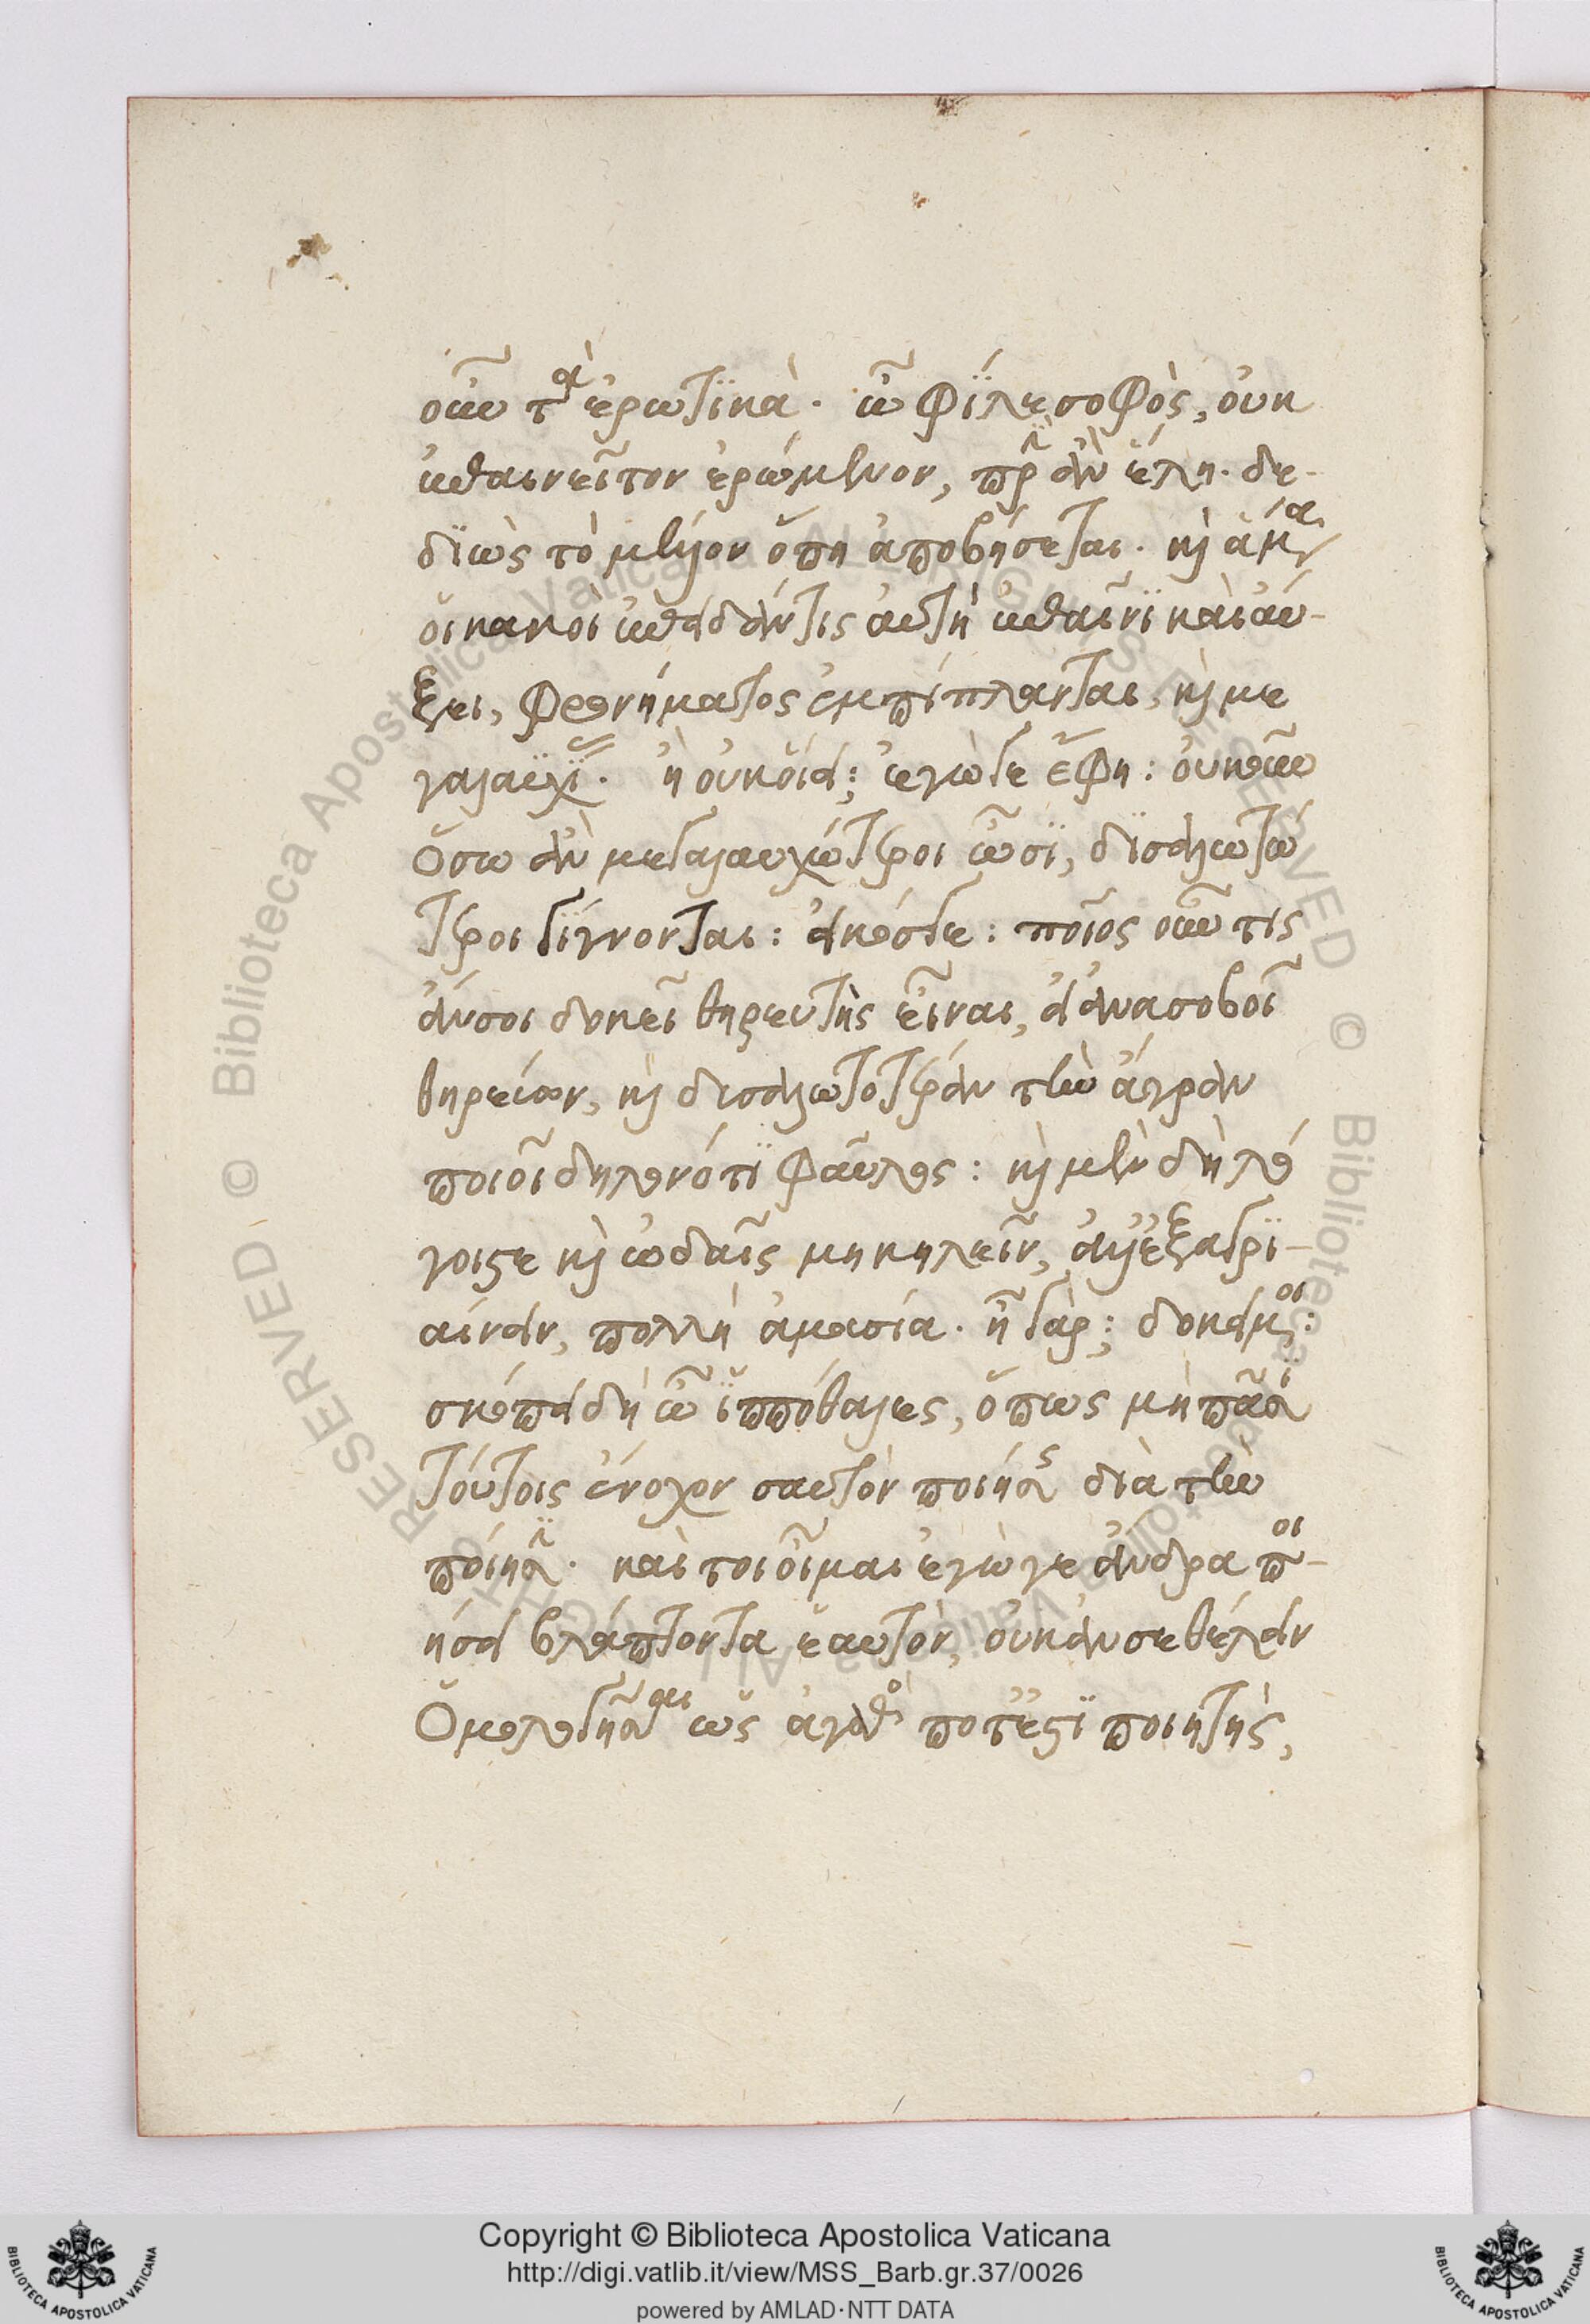 οὖν τὰ ἐρωτϊκὰ. ὦ φΐλε σοφὸς, οὐκ
ἐπαινεῖ τον ἐρώμενον, πρὶν ἂν ἕλη. δε-
δϊὼς τὸ μέλλον ὅπη ἀποβήσεται. καὶ ἅμα
οἱ καλοὶ ἐπειδάν τις αὐτὴ ἐπαινῆ καὶ αὔ-
ξει, φρονήματος ἐμπίπλανται, καὶ με
γαλαυχΐ. ἢ οὐκ οἴει; ἐγώγε ἔφη: οὐκοῦν
ὅσω ἂν μεγαλαυχώτεροι ὦσϊ, δϊσαλωτώ
τεροι γΐγνονται: εἰκόσγε: ποῖος οὖν τις
ἄν σοι δοκεῖ θηρευτὴς εἶναι, εἰ ἀνασοβοῖ
θηρεύων, καὶ δισαλωτοτέραν τὴν ἄγραν
ποιοῖ δηλονότϊ φαῦλος: καὶ μὲν δὴ λό
γοις τε καὶ ὠδαῖς μὴ κηλεῖν, ἀλλ' ἐξαγρϊ-
αίνειν, πολλὴ ἀμουσία. ἦ γάρ; δοκεῖ μοι:
σκόπει δὴ ὦ ἱππόθαλες, ὅπως μὴ πᾶσϊ
τούτοις ἔνοχον σαυτὸν ποιήσης διὰ τὴν
ποίησϊν. καί τοι οἶμαι ἐγὼ γε ἄνδρα ποι-
ήσει βλάπτοντα ἑαυτὸν, οὐκ ἄν σε θέλειν
ὁμολογῆσαι ὡς ἀγαθὸς ποτ' ἐστϊ ποιητὴς,
Copyright © Biblioteca Apostolica Vaticana
http://digi.vatlib.it/view/MSS_Barb.gr.37/0026
powered by AMLAD·NTT DATA